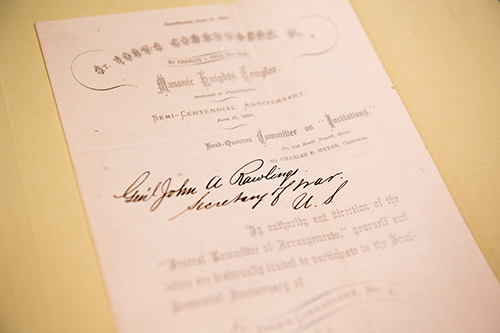 Constituted June 10, 1819.
St. John's Commandery No. 4,
Sir CHARLES
Masonic Knights Templar,
Stationed at Philadelphia.
SEMI-CENTENNIAL ANNIVERSARY:
June 11, 1869.
Head-Quarters Committee on "Invitations,"
North Fourth Street
Sir CHARLES E. MEYER, Chairman.
Genl John A Rawlings
Secretary of War.
U. S
In authority and direction of the
"General Committee of Arrangements," yourself and
are fraternally invited to participate in the Semi-
Centennial Anniversary of
St. John's Commandery, No. 4,